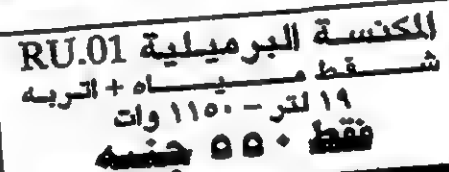 المكنسة البرميلية RU.01
شفط مياه + اتربه
١٩ لتر - ١١٥٠ وات
فقط ٥٥٠ جنيه